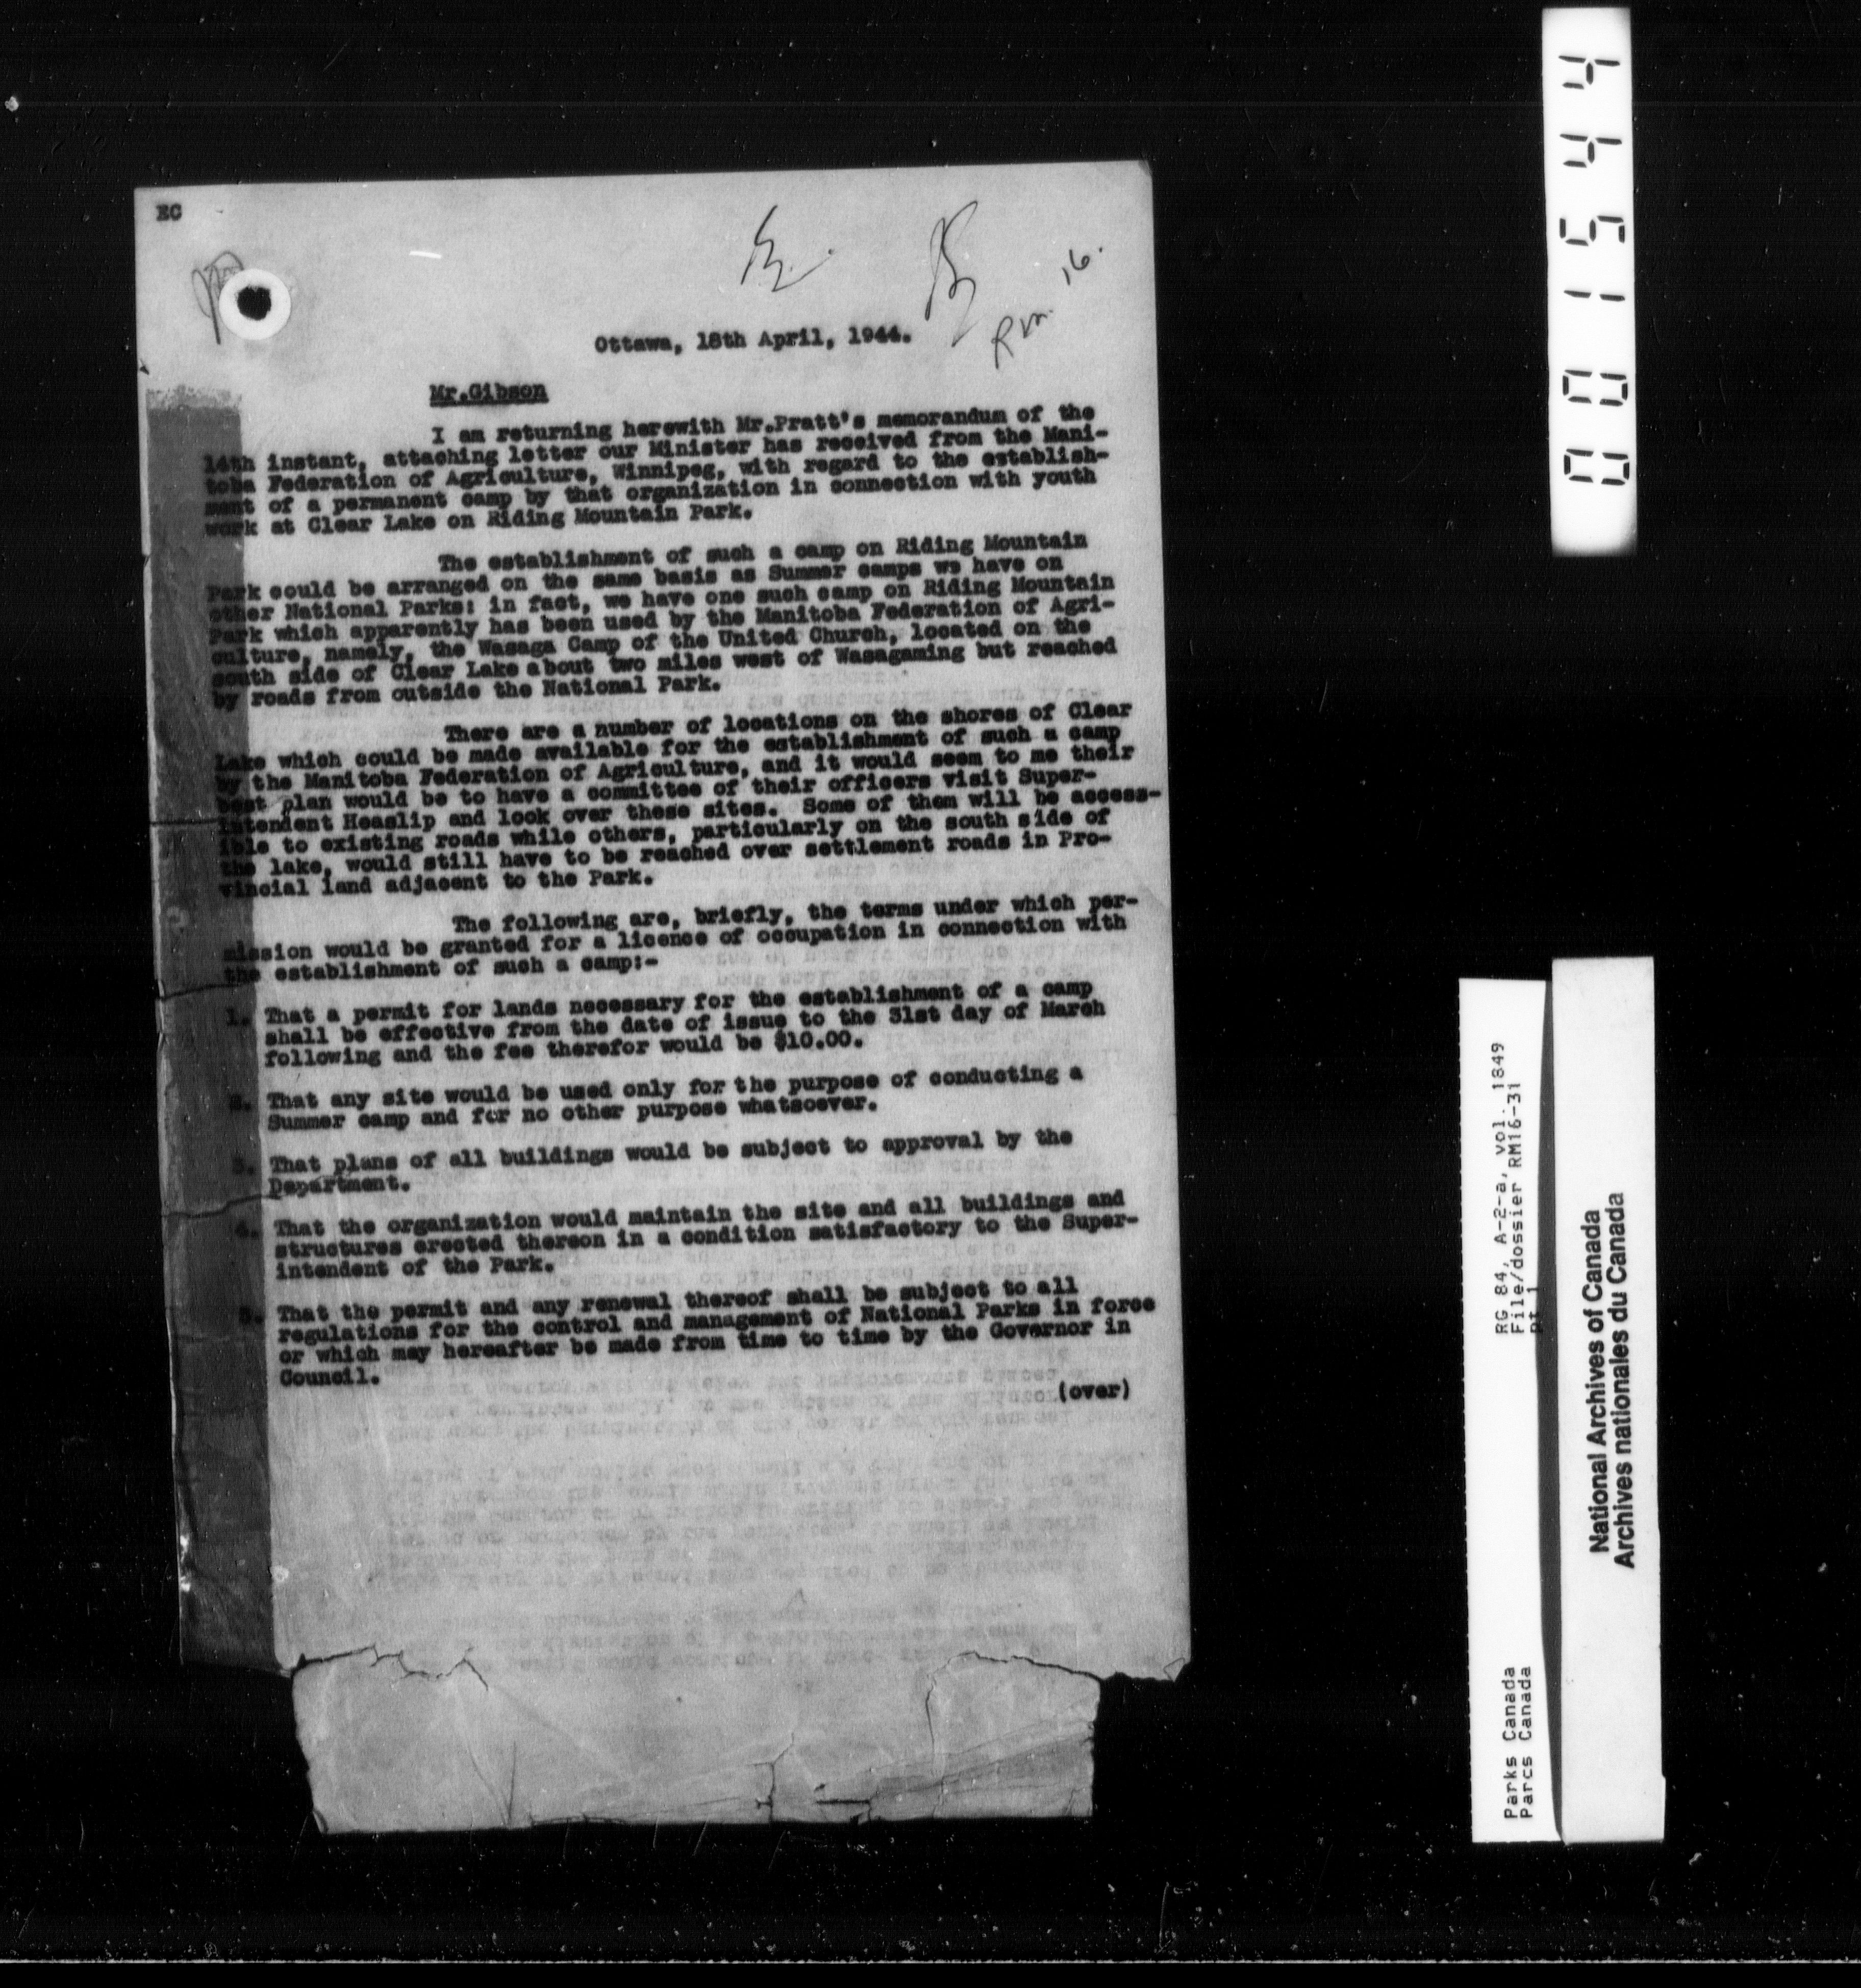 EC
Rm. 16.
Ottawa, 18th April, 1944.
Mr.Gibson
I am returning herewith Mr.Pratt's memorandum of the
14th instant, attaching letter our Minister has received from the Mani-
toba Federation of Agriculture, Winnipeg, with regard to the establish-
ment of a permanent camp by that organization in connection with youth
work at Clear Lake on Riding Mountain Park.
The establishment of such a camp on Riding Mountain
Park could be arranged on the same basis as Summer camps we have on
other National Parks: in fact, we have one such camp on Riding Mountain
Park which apparently has been used by the Manitoba Federation of Agri-
culture, namely, the Wasaga Camp of the United Church, located on the
south side of Clear Lake about two miles west of Wasagaming but reached
by roads from outside the National Park.
There are a number of locations on the shores of Clear
Lake which could be made available for the establishment of such a camp
by the Manitoba Federation of Agriculture, and it would seem to me their
best plan would be to have a committee of their officers visit Super-
intendent Heaslip and look over these sites. Some of them will be access-
ible to existing roads while others, particularly on the south side of
the lake, would still have to be reached over settlement roads in Pro-
vincial land adjacent to the Park.
The following are, briefly, the terms under which per-
mission would be granted for a licence of occupation in connection with
the establishment of such a camp:-
1. That a permit for lands necessary for the establishment of a camp
shall be effective from the date of issue to the 31st day of March
following and the fee therefor would be $10.00.
2. That any site would be used only for the purpose of conducting a
Summer camp and for no other purpose whatsoever.
3. That plans of all buildings would be subject to approval by the
Department.
4. That the organization would maintain the site and all buildings and
structures erected thereon in a condition satisfactory to the Super-
intendent of the Park.
5. That the permit and any renewal thereof shall be subject to all
regulations for the control and management of National Parks in force
or which may hereafter be made from time to time by the Governor in
Council.
(over)
001544
RG 84, A-2-a, vol. 1849
File/dossier RM16-31
pt 1
Parks Canada
Parcs Canada
National Archives of Canada
Archives nationales du Canada